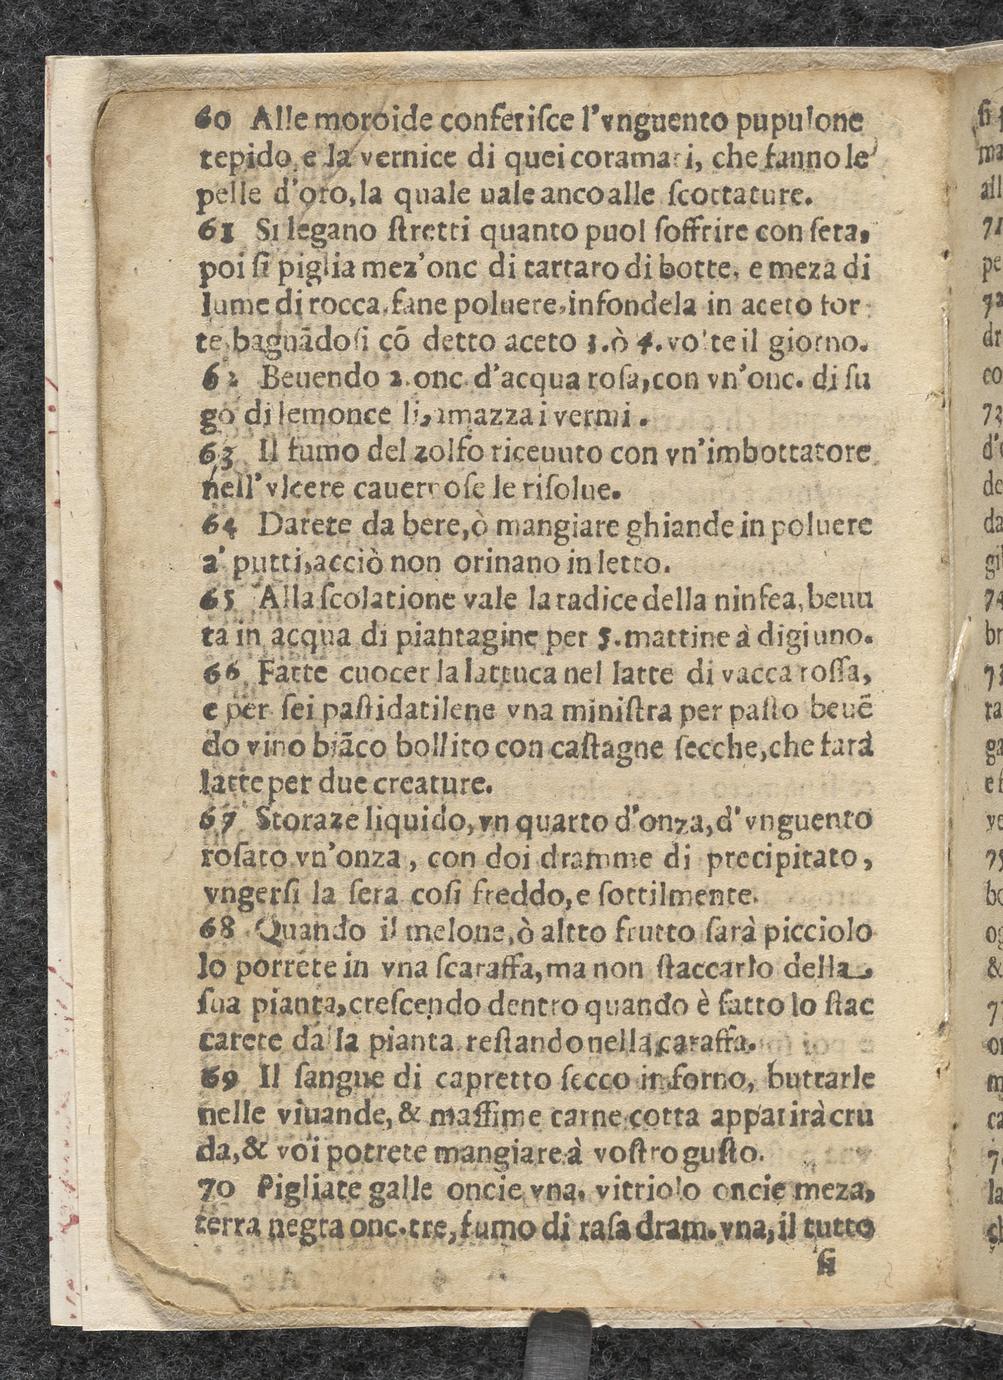 60 Alle moroide conferiſce l'vnguento pupulone
tepido, e la vernice di quei coramari, che fanno le
pelle d'oro, la quale uale anco alle ſcottature.
61 Si legano ſtretti quanto puol ſoffrire con ſeta,
poi ſi piglia mez'onc di tartaro di botte, e meza di
lume di rocca, fane poluere, infondela in aceto for
te, bagnãdoſi cõ detto aceto 3. ò 4. volte il giorno.
62 Beuendo 2. onc. d'acqua roſa, con vn'onc. di ſu
go di lemonce li, amazza i vermi.
63 Il fumo del zolfo riceuuto con vn'imbottatore
nell'vlcere cauernoſe le riſolue.
64 Darete da bere, ò mangiare ghiande in poluere
a' putti, acciò non orinano in letto.
65 Alla ſcolatione vale la radice della ninfea, beuu
ta in acqua di piantagine per 5. mattine à digiuno.
66 Fatte cuocer la lattuca nel latte di vacca roſſa,
e per ſei paſti datilene vna miniſtra per paſto beuẽ
do vino biãco bollito con caſtagne ſecche, che farà
latte per due creature.
67 Storaze liquido, vn quarto d'onza, d'vnguento
roſato vn'onza, con doi dramme di precipitato,
vngerſi la ſera coſi freddo, e ſottilmente.
68 Quando il melone, ò altro frutto ſarà picciolo
lo porrete in vna ſcaraffa, ma non ſtaccarlo della
ſua pianta, creſcendo dentro quando è fatto lo ſtac
carete dalla pianta reſtando nella caraffa.
69 Il ſangue di capretto ſecco in forno, buttarle
nelle viuande, & maſſime carne cotta apparirà cru
da, & voi potrete mangiare à voſtro guſto.
70 Pigliate galle oncie vna, vitriolo oncie meza,
terra negra onc. tre, fumo di raſa dram. vna, il tutto
ſi